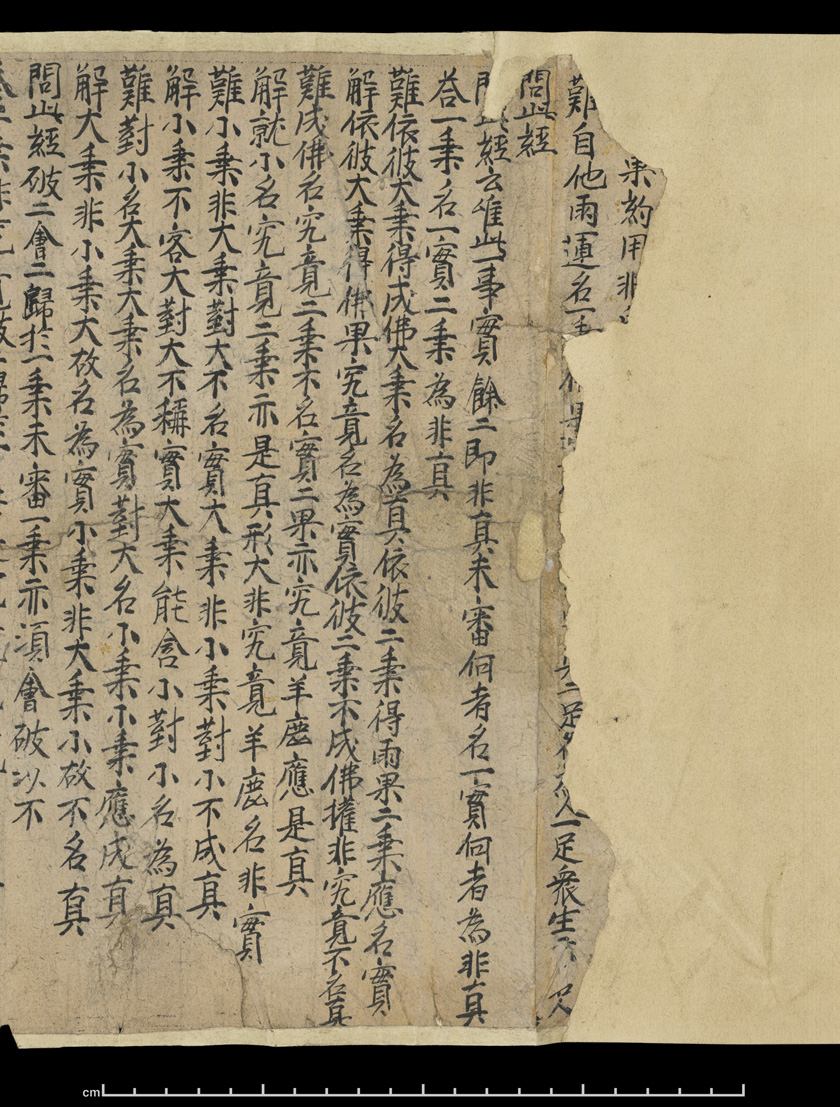 果約用非
難自他兩運名一
二足 人一足衆生
問此經
問此經云唯此一事實餘二即非真未審何者名一實何者為非真
荅一乗名一實二乗為非真
難依彼大乗得成佛大乗名為真依彼二乗得兩果二乗應名實
解依彼大乗得佛果究竟名為實依彼二乗不成佛權非究竟不名真
難成佛名究竟二乗不名實二果亦究竟羊鹿應是真
解就小名究竟二乗亦是真形大非究竟羊鹿名非實
難小乗非大乗對大不名實大乗非小乗對小不成真
解小乗不容大對大不稱實大乗能含小對小名為真
難對小名大乗大乗名為實對大名小乗小乗應成真
解大乗非小乗大故名為實小乗非大乗小故不名真
問此經破二會二歸於一乗未審一乗亦須會破以不